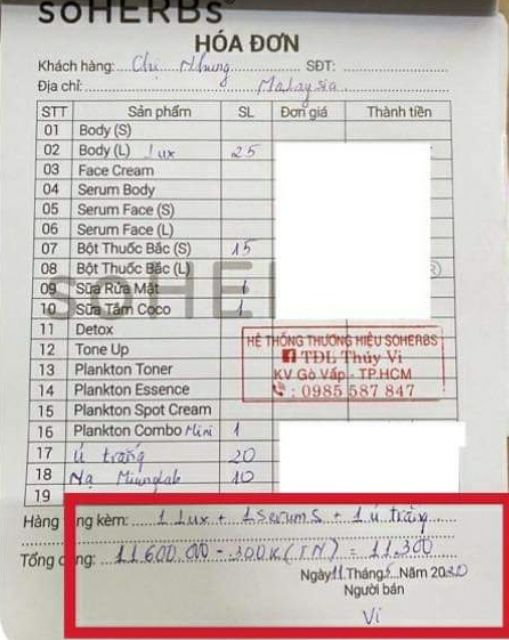 SOHERBs
HÓA ĐƠN
Khách hàng: Chị Nhung SĐT:
Địa chỉ: Malaysia
STT Sản phẩm SL Đơn giá Thành tiền
01 Body (S)
02 Body (L) Lux 25
03 Face Cream
04 Serum Body
05 Serum Face (S)
06 Serum Face (L)
07 Bột Thuốc Bắc (S) 15
08 Bột Thuốc Bắc (L)
09 Sữa Rửa Mặt 6
10 Sữa Tắm Coco 1
11 Detox
12 Tone Up
13 Plankton Toner
14 Plankton Essence
15 Plankton Spot Cream
16 Plankton Combo Mini 1
17 Ủ trắng 20
18 Nạ Miunglab 10
19
HỆ THỐNG THƯƠNG HIỆU SOHERBS
TĐL Thúy Vi
KV Gò Vấp - TP.HCM
: 0985 587 847
Hàng tặng kèm: 1 Lux + 1 Serum S + 1 ủ trắng
Tổng cộng: 11.600.000 - 300K (TN) = 11.300
Ngày 11 Tháng 5 Năm 2020
Người bán
Vi